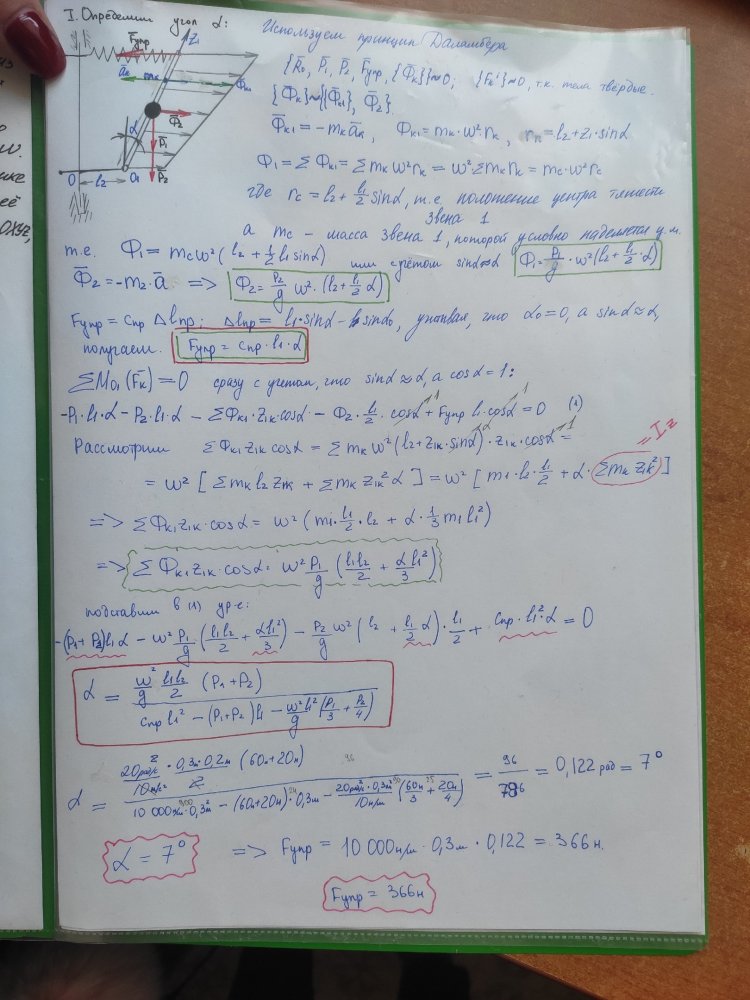 I. Определим угол α:
Используем принцип Даламбера
{R̄₀, P̄₁, P̄₂, F̄упр, {Φ̄k}}~0; {Fкⁱ}~0, т.к. тела твёрдые.
{Φ̄k}~{{Φ̄k1}, Φ̄₂}
Φ̄k1 = -mk āk, Φk1 = mk·ω²·rk, rk = l₂+z₁·sinα
Φ₁ = ΣΦk1 = Σmk ω² rk = ω² Σmk rk = mc·ω² rc
где rc = l₂ + l₁/2 sinα, т.е. положение центра тяжести
звена 1
а mc – масса звена 1, которой условно наделяется ц.м.
т.е. Φ₁ = mc ω² (l₂ + 1/2 l₁ sinα) или с учётом sinα≈α Φ₁ = P₁/g · ω² (l₂ + l₁/2 · α)
Φ̄₂ = -m₂·ā => Φ₂ = P₂/g ω² · (l₂ + l₁/2 α)
Fупр = cпр Δlпр; Δlпр = l₁·sinα – l₁ sinα₀, учитывая, что α₀=0, а sinα≈α,
получаем. Fупр = cпр·l₁·α
ΣM₀₁(F̄k) = 0 сразу с учетом, что sinα≈α, а cosα=1:
-P₁·l₁·α – P₂·l₁·α – ΣΦk1·z1k·cosα – Φ₂·l₁/2·cosα + Fупр l₁·cosα = 0 (1)
Рассмотрим ΣΦk1 z1k cosα = Σmk ω² (l₂+z1k·sinα)·z1k·cosα =
= ω² [Σmk l₂ z1k + Σmk z1k² α] = ω² [m₁·l₂·l₁/2 + α·Σmk z1k²] = Iz
=> ΣΦk1 z1k·cosα = ω² (m₁·l₁/2·l₂ + α·1/3 m₁ l₁²)
=> ΣΦk1 z1k·cosα = ω² P₁/g (l₁l₂/2 + α l₁²/3)
подставим в (1) ур-е:
-(P₁+P₂)l₁α – ω² P₁/g (l₁l₂/2 + α l₁²/3) – P₂/g ω² (l₂ + l₁/2 α)·l₁/2 + cпр·l₁²·α = 0
α = (ω²/g l₁l₂/2 (P₁+P₂)) / (cпр l₁² – (P₁+P₂) l₁ – ω² l₁²/g (P₁/3 + P₂/4))
α = (20рад/с²/10м/с² · 0,3м·0,2м/2 (60н+20н)) / (10 000н/м·0,3м² – (60н+20н)·0,3м – 20рад/с²·0,3м²/10м/с (60н/3 + 20н/4)) = 96/786 = 0,122 рад = 7°
α = 7° => Fупр = 10 000н/м · 0,3м · 0,122 = 366н.
Fупр = 366н